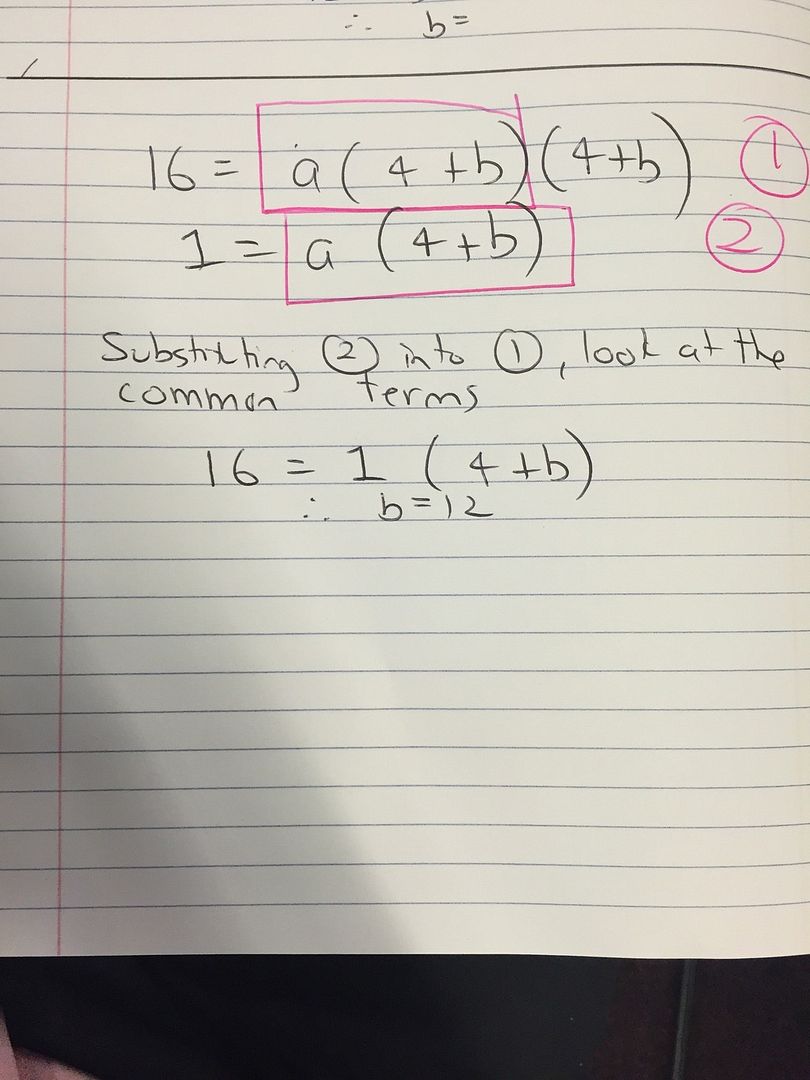 ∴ b=
16 = a ( 4 +b) (4+b) ①
1 = a (4+b) ②
Substituting ② into ①, look at the
common terms
16 = 1 ( 4+b)
∴ b=12